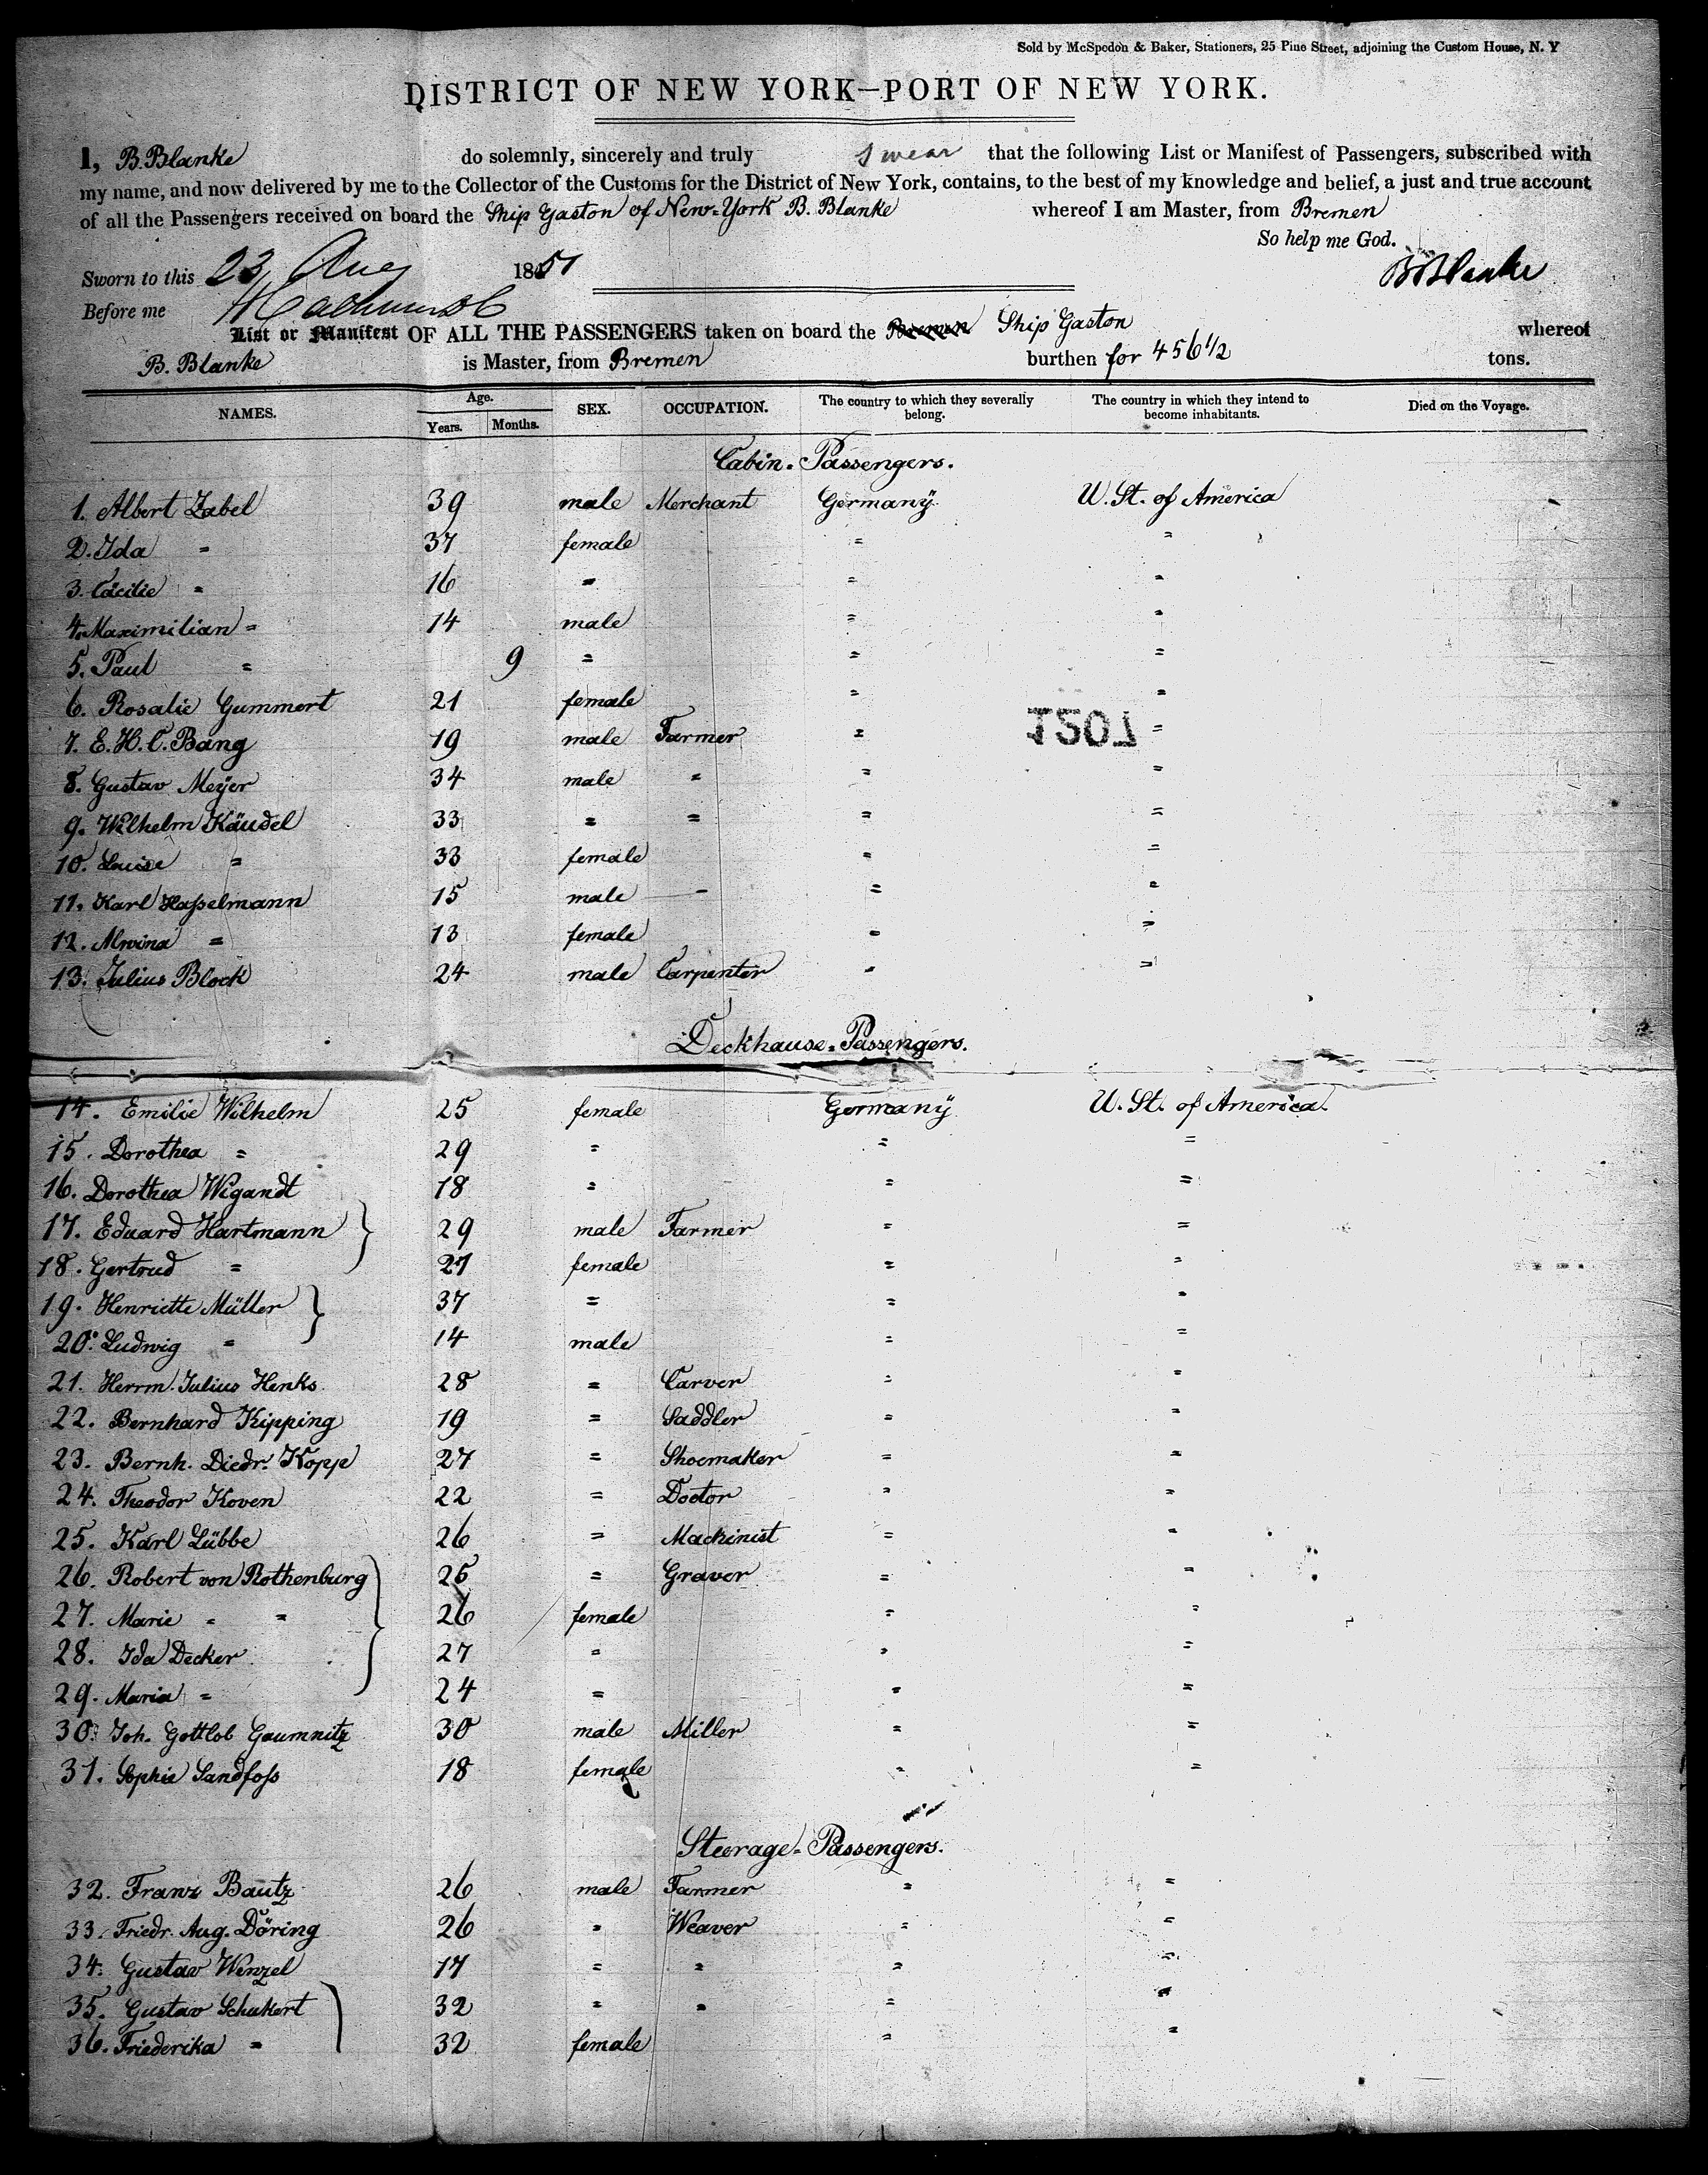 Sold by McSpedon & Baker, Stationers, 25 Pine Street, adjoining the Custom House, N. Y
DISTRICT OF NEW YORK—PORT OF NEW YORK.
I, B. Blanke do solemnly, sincerely and truly swear that the following List or Manifest of Passengers, subscribed with
my name, and now delivered by me to the Collector of the Customs for the District of New York, contains, to the best of my knowledge and belief, a just and true account
of all the Passengers received on board the Ship Gaston of New-York B. Blanke whereof I am Master, from Bremen
So help me God.
Sworn to this 23 Aug 1851
B Blanke
Before me
List or Manifest OF ALL THE PASSENGERS taken on board the Bremen Ship Gaston whereof
B. Blanke is Master, from Bremen burthen for 456 1/2 tons.
NAMES. Age. Years. Months. SEX. OCCUPATION. The country to which they severally belong. The country in which they intend to become inhabitants. Died on the Voyage.
Cabin-Passengers.
1. Albert Zabel 39 male Merchant Germany U. St. of America
2. Ida " 37 female " "
3. Cäcilie " 16 " " "
4. Maximilian " 14 male " "
5. Paul " 9 " " "
6. Rosalie Gummert 21 female " "
7. E. H. C. Bang 19 male Farmer " "
1507
8. Gustav Meyer 34 male " " "
9. Wilhelm Käudel 33 " " " "
10. Luise " 33 female " "
11. Karl Haßelmann 15 male — " "
12. Alwina " 13 female " "
13. Julius Block 24 male Carpenter " "
Deckhause-Passengers.
14. Emilie Wilhelm 25 female Germany U. St. of America.
15. Dorothea " 29 " " "
16. Dorothea Wigandt 18 " " "
17. Eduard Hartmann 29 male Farmer " "
18. Gertrud " 27 female " "
19. Henriette Müller 37 " " "
20. Ludwig " 14 male " "
21. Herrm. Julius Henks 28 " Carver " "
22. Bernhard Kipping 19 " Saddler " "
23. Bernh. Diedr. Kopp 27 " Shoemaker " "
24. Theodor Koven 22 " Doctor " "
25. Karl Lübbe 26 " Machinist " "
26. Robert von Rothenburg 26 " Graver " "
27. Marie " " 26 female " "
28. Ida Decker 27 " " "
29. Maria " 24 " " "
30. Joh. Gottlob Gaumnitz 30 male Miller " "
31. Sophie Sandfoß 18 female " "
Steerage-Passengers.
32. Franz Bautz 26 male Farmer " "
33. Friedr. Aug. Döring 26 " Weaver " "
34. Gustav Wenzel 17 " " " "
35. Gustav Schukert 32 " " " "
36. Friederika " 32 female " "